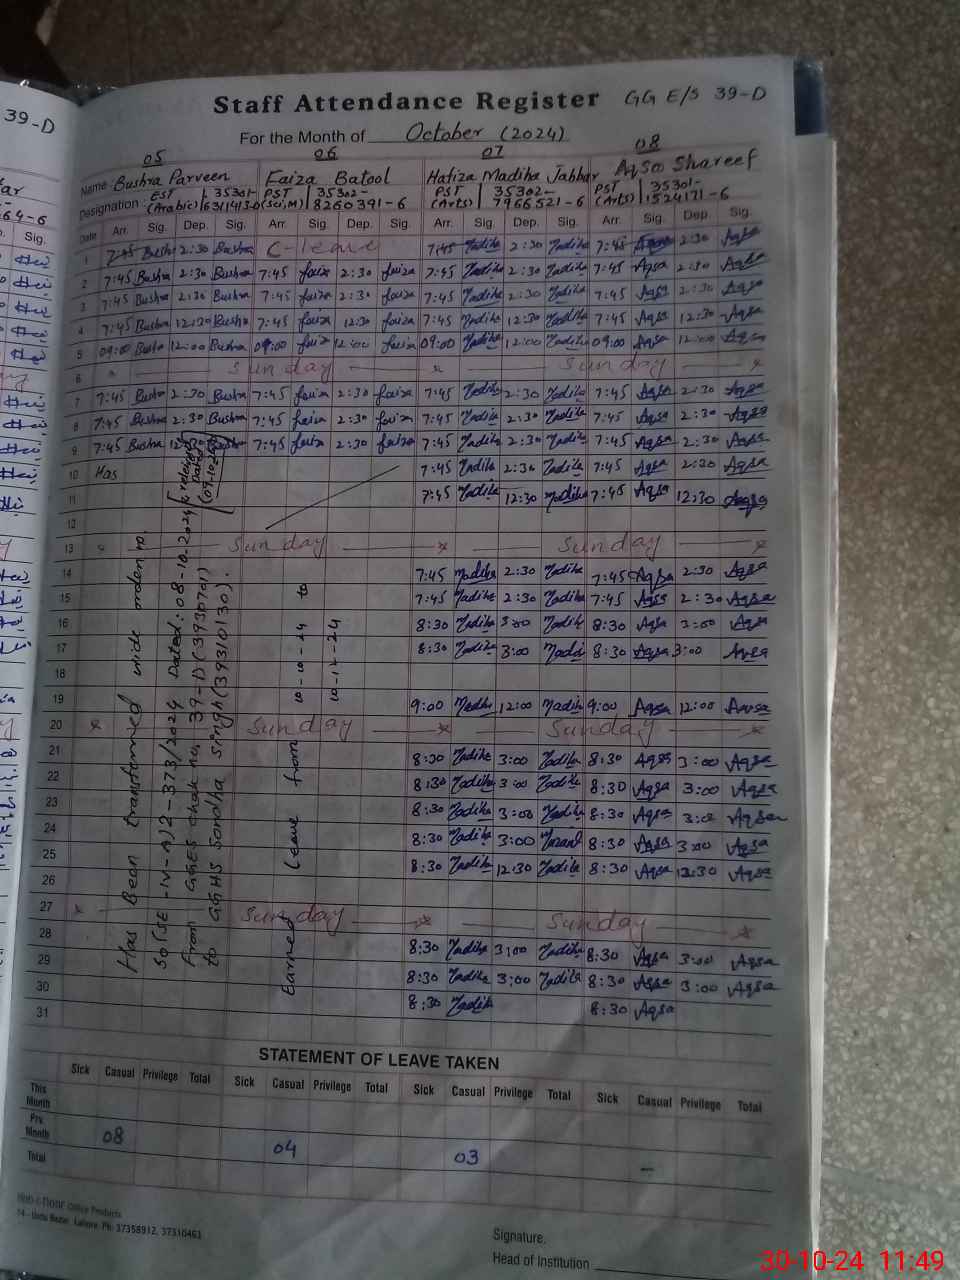 39-D
Staff Attendance Register GG E/S 39-D
For the Month of October (2024)
05 06 07 08
Name: Bushra Parveen Faiza Batool Hafiza Madiha Jabbar Aqsa Shareef
Designation: EST (Arabic) PST (Sci,M) 35302-8260391-6 PST (Arts) 35302-7966521-6 PST (Arts) 35301-1524171-6
Date Arr. Sig. Dep. Sig. Arr. Sig. Dep. Sig. Arr. Sig. Dep. Sig. Arr. Sig. Dep. Sig.
1 7:45 Bushra 2:30 Bushra C-leave 7:45 Madiha 2:30 Madiha 7:45 2:30 Aqsa
2 7:45 Bushra 2:30 Bushra 7:45 faiza 2:30 faiza 7:45 Madiha 2:30 Madiha 7:45 Aqsa 2:30 Aqsa
3 7:45 Bushra 2:30 Bushra 7:45 faiza 2:30 faiza 7:45 Madiha 2:30 Madiha 7:45 Aqsa 2:30 Aqsa
4 7:45 Bushra 12:30 Bushra 7:45 faiza 12:30 faiza 7:45 Madiha 12:30 Madiha 7:45 Aqsa 12:30 Aqsa
5 09:00 Bushra 12:00 Bushra 09:00 faiza 12:00 faiza 09:00 Madiha 12:00 Madiha 09:00 Aqsa 12:00 Aqsa
6 Sunday Sunday
7 7:45 Bushra 2:30 Bushra 7:45 faiza 2:30 faiza 7:45 Madiha 2:30 Madiha 7:45 Aqsa 2:30 Aqsa
8 7:45 Bushra 2:30 Bushra 7:45 faiza 2:30 faiza 7:45 Madiha 2:30 Madiha 7:45 Aqsa 2:30 Aqsa
9 7:45 Bushra Bushra 7:45 faiza 2:30 faiza 7:45 Madiha 2:30 Madiha 7:45 Aqsa 2:30 Aqsa
10 Has 7:45 Madiha 2:30 Madiha 7:45 Aqsa 2:30 Aqsa
11 7:45 Madiha 12:30 Madiha 7:45 Aqsa 12:30 Aqsa
12
13 Sunday Sunday
14 7:45 Madiha 2:30 Madiha 7:45 Aqsa 2:30 Aqsa
15 7:45 Madiha 2:30 Madiha 7:45 Aqsa 2:30 Aqsa
16 8:30 Madiha 3:00 Madiha 8:30 Aqsa 3:00 Aqsa
17 8:30 Madiha 3:00 Madiha 8:30 Aqsa 3:00 Aqsa
18
19 9:00 Madiha 12:00 Madiha 9:00 Aqsa 12:00 Aqsa
20 Sunday Sunday
21 8:30 Madiha 3:00 Madiha 8:30 Aqsa 3:00 Aqsa
22 8:30 Madiha 3:00 Madiha 8:30 Aqsa 3:00 Aqsa
23 8:30 Madiha 3:00 Madiha 8:30 Aqsa Aqsa
24 8:30 Madiha 3:00 8:30 Aqsa 3:00 Aqsa
25 8:30 Madiha 12:30 Madiha 8:30 Aqsa 12:30 Aqsa
26
27 Sunday Sunday
28 8:30 Madiha 3:00 Madiha 8:30 Aqsa 3:00 Aqsa
29 8:30 Madiha 3:00 Madiha 8:30 Aqsa 3:00 Aqsa
30 8:30 Madiha 8:30 Aqsa
31
Has Been transferred wide order no
So(SE-IV-A)2-373/2024 Dated: 08-10-2024
From GGES chak no. 39-D (39310701)
to GGHS Sondha Singh (39310130).
Earned Leave from
10-10-24 to
10-12-24
STATEMENT OF LEAVE TAKEN
Sick Casual Privilege Total Sick Casual Privilege Total Sick Casual Privilege Total Sick Casual Privilege Total
This Month
Prv. Month 08 04 03 -
Total
14 - Urdu Bazar, Lahore. Ph: 37358912, 37310463
Signature.
Head of Institution
30-10-24 11:49